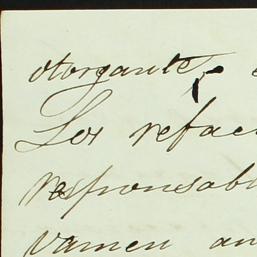 otorgante,
Los refac
responsabl
vamen an